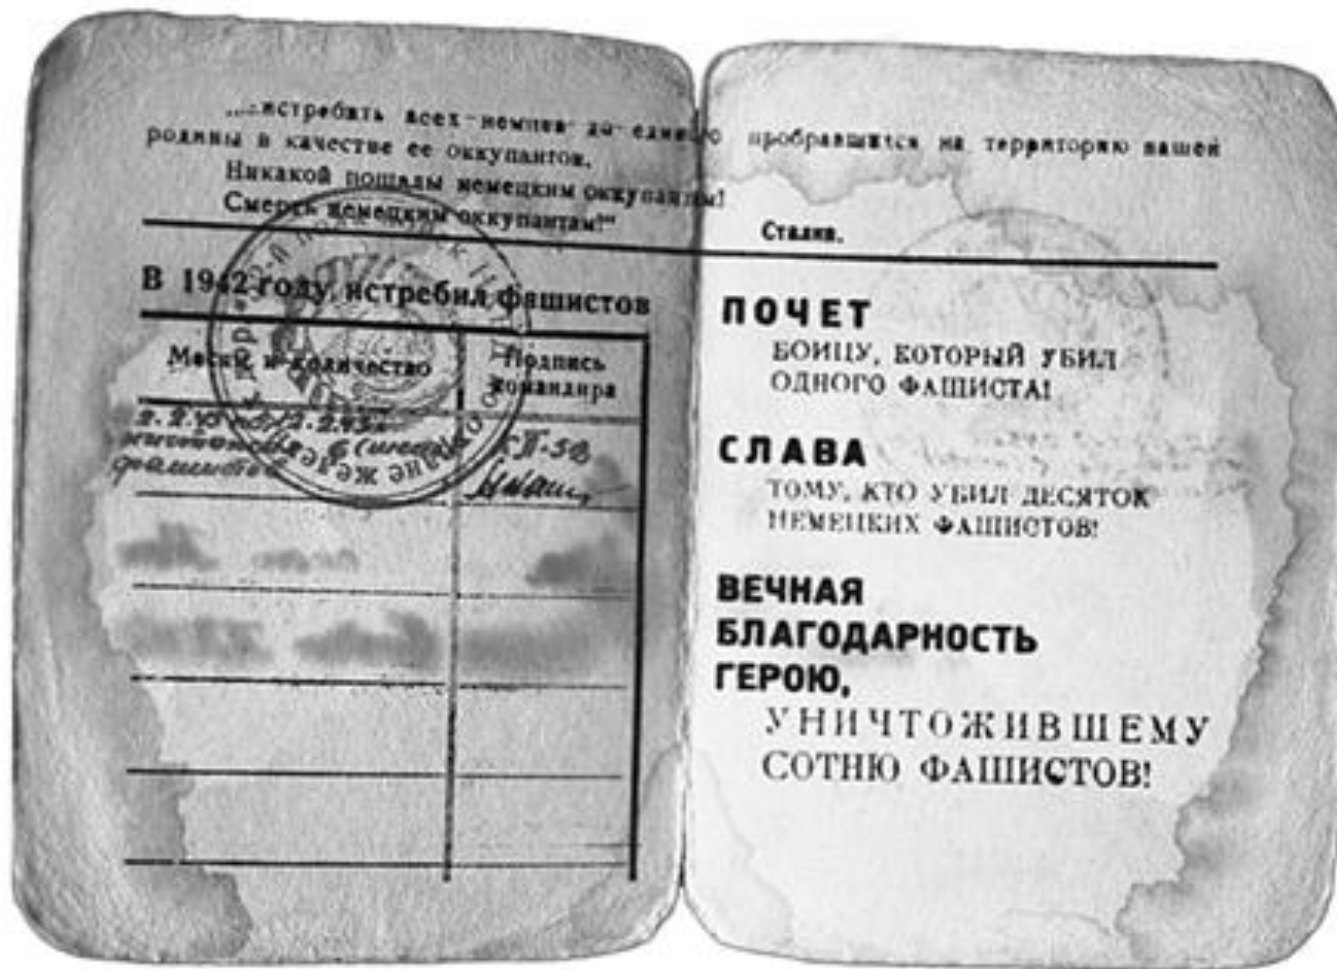 „...истребить всех немцев до единого пробравшихся на территорию нашей
родины в качестве ее оккупантов.
Никакой пощады немецким оккупантам!
Смерть немецким оккупантам!"
Сталин.
В 1942 году истребил фашистов
Месяц и количество
Подпись
командира
2.2.43 2.2.43
6
фашистов
ПОЧЕТ
БОЙЦУ, КОТОРЫЙ УБИЛ
ОДНОГО ФАШИСТА!
СЛАВА
ТОМУ, КТО УБИЛ ДЕСЯТОК
НЕМЕЦКИХ ФАШИСТОВ!
ВЕЧНАЯ
БЛАГОДАРНОСТЬ
ГЕРОЮ,
УНИЧТОЖИВШЕМУ
СОТНЮ ФАШИСТОВ!